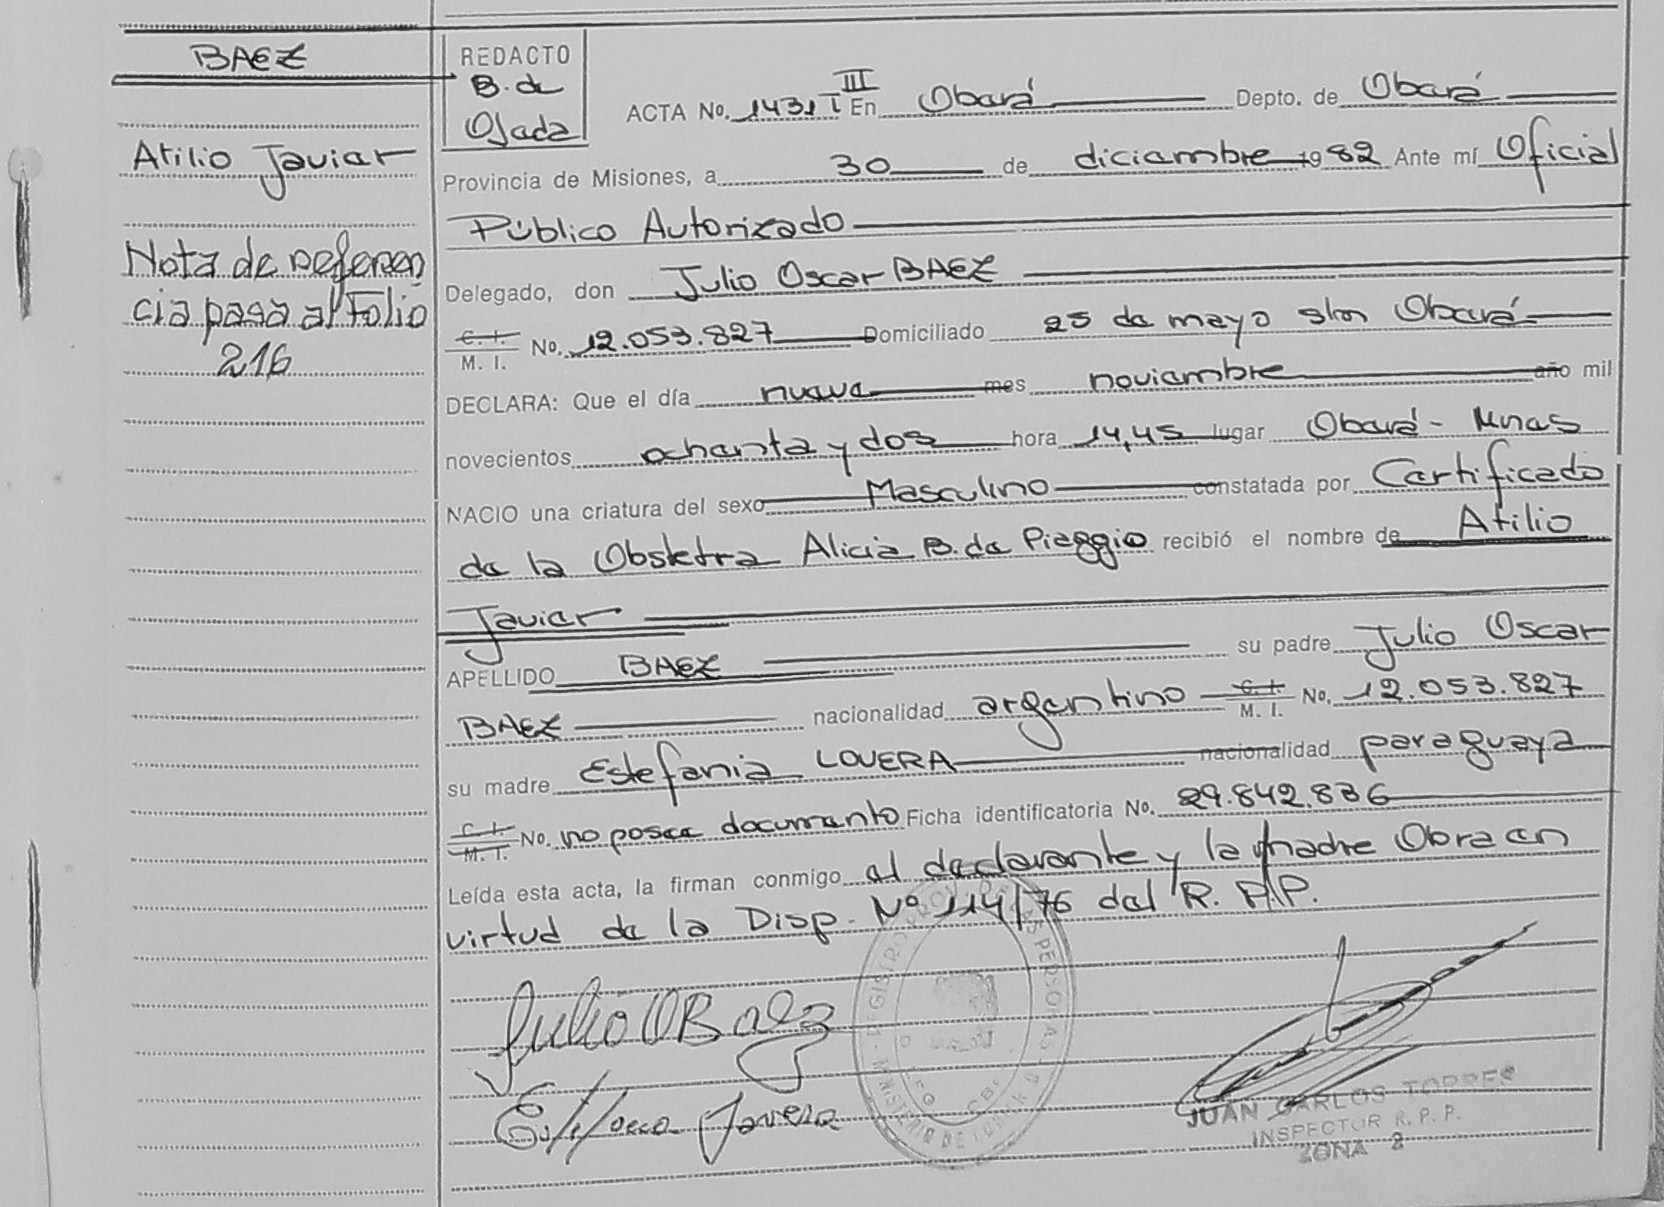 BAEZ
Atilio Javier
Nota de referen
cia pasa al Folio
216
REDACTO
B. de
Ojeda
III
ACTA No. 1431 T En Oberá Depto. de Oberá
Provincia de Misiones, a 30 de diciembre 1982 Ante mí Oficial
Público Autorizado
Delegado, don Julio Oscar BAEZ
C. I.
M. I. No. 12.053.827 Domiciliado 25 de mayo s/n Oberá
DECLARA: Que el día nueve mes noviembre año mil
novecientos ochenta y dos hora 14,45 lugar Oberá - Mnes
NACIO una criatura del sexo Masculino constatada por Certificado
de la Obstetra Alicia B. de Piaggio recibió el nombre de Atilio
Javier
APELLIDO BAEZ su padre Julio Oscar
BAEZ nacionalidad argentino C. I. M. I. No. 12.053.827
su madre Estefania LOVERA nacionalidad paraguaya
C. I.
M. I. No. no posee documento Ficha identificatoria No. 29.842.836
Leída esta acta, la firman conmigo el declarante y la madre Obra en
virtud de la Disp. Nº 114/76 del R. P. P.
Julio O Baez
JUAN CARLOS TORRES
INSPECTOR R. P. P.
ZONA 2